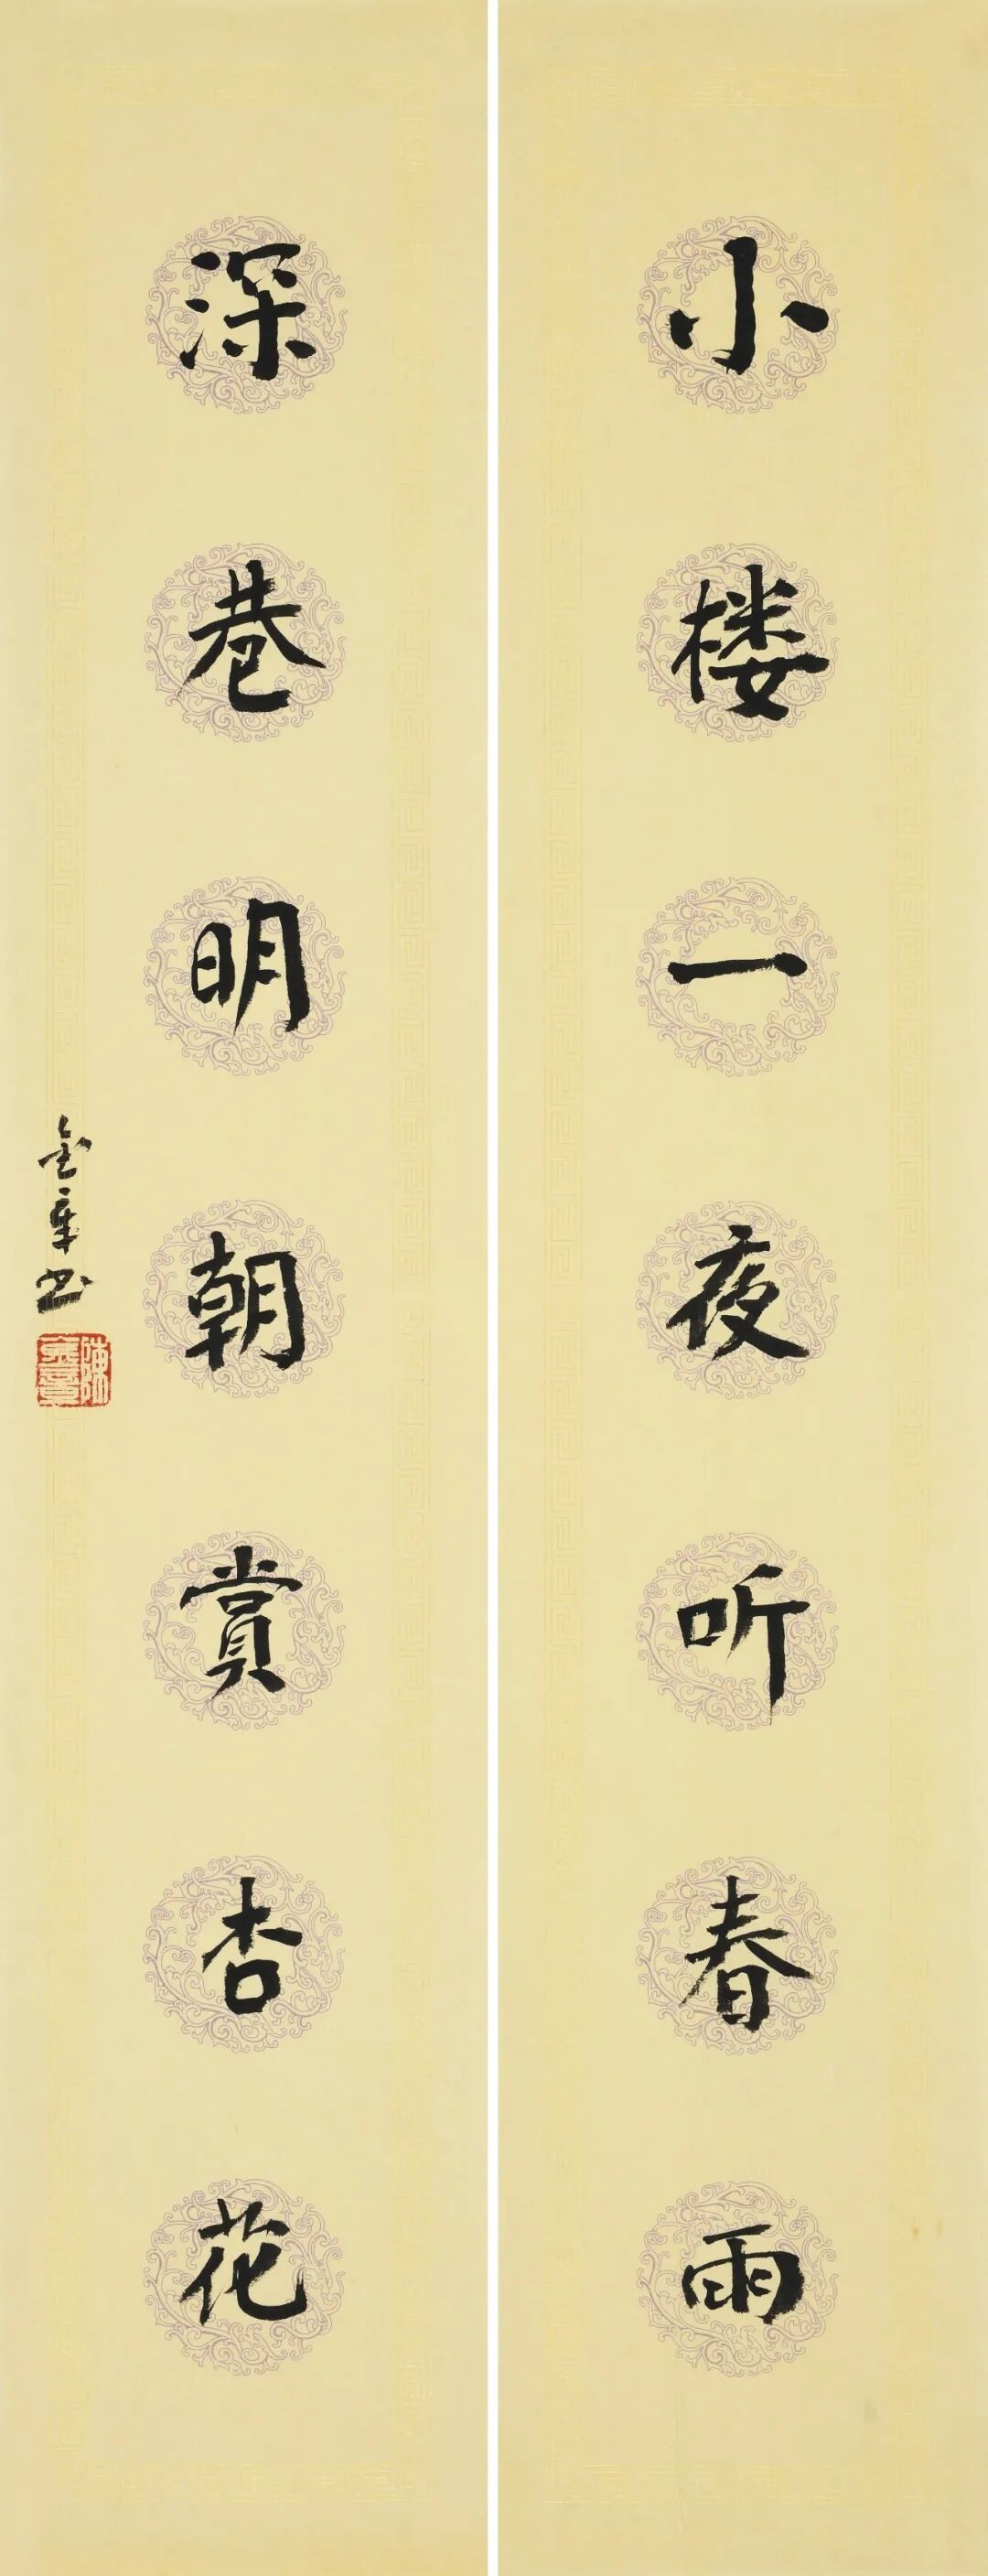 小楼一夜听春雨
深巷明朝賞杏花
金章书